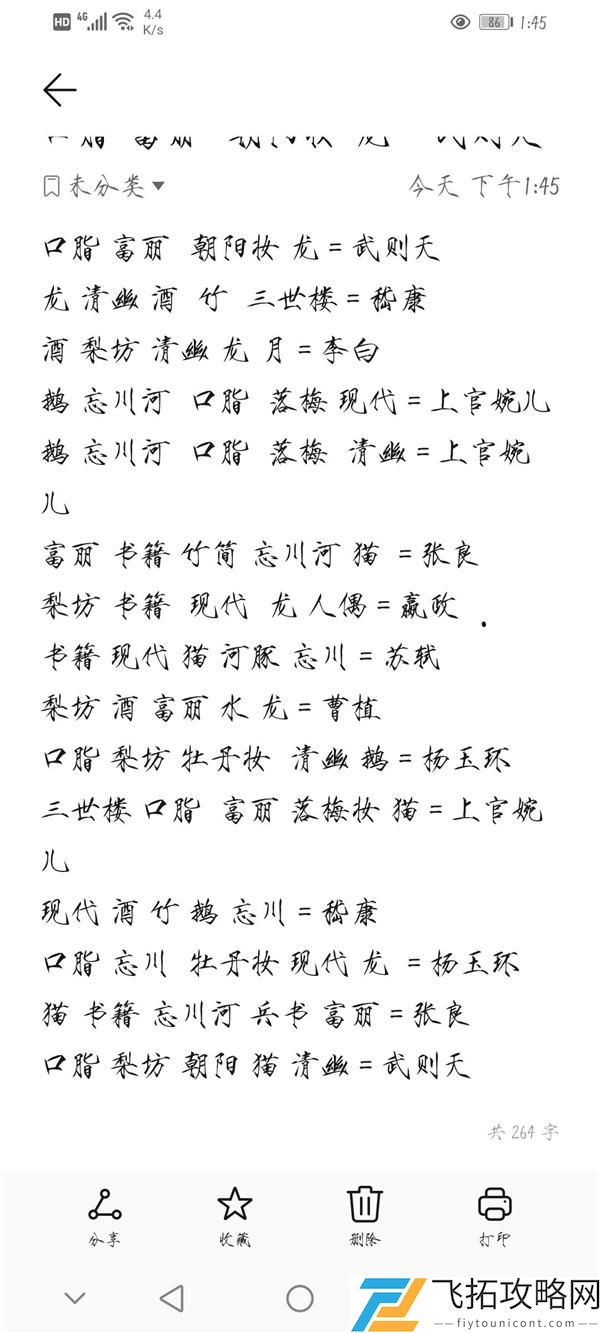 HD 4G 4.4 K/s 86 1:45
口脂 富丽 朝阳妆 龙 = 武则天
未分类 今天 下午1:45
口脂 富丽 朝阳妆 龙 = 武则天
龙 清幽 酒 竹 三世楼 = 嵇康
酒 梨坊 清幽 龙 月 = 李白
鹅 忘川河 口脂 落梅 现代 = 上官婉儿
鹅 忘川河 口脂 落梅 清幽 = 上官婉
儿
富丽 书籍 竹简 忘川河 猫 = 张良
梨坊 书籍 现代 龙 人偶 = 嬴政
书籍 现代 猫 河豚 忘川 = 苏轼
梨坊 酒 富丽 水 龙 = 曹植
口脂 梨坊 牡丹妆 清幽 鹅 = 杨玉环
三世楼 口脂 富丽 落梅妆 猫 = 上官婉
儿
现代 酒 竹 鹅 忘川 = 嵇康
口脂 忘川 牡丹妆 现代 龙 = 杨玉环
猫 书籍 忘川河 兵书 富丽 = 张良
口脂 梨坊 朝阳 猫 清幽 = 武则天
共 264 字
分享 收藏 删除 打印
飞拓攻略网
fiytounicont.com